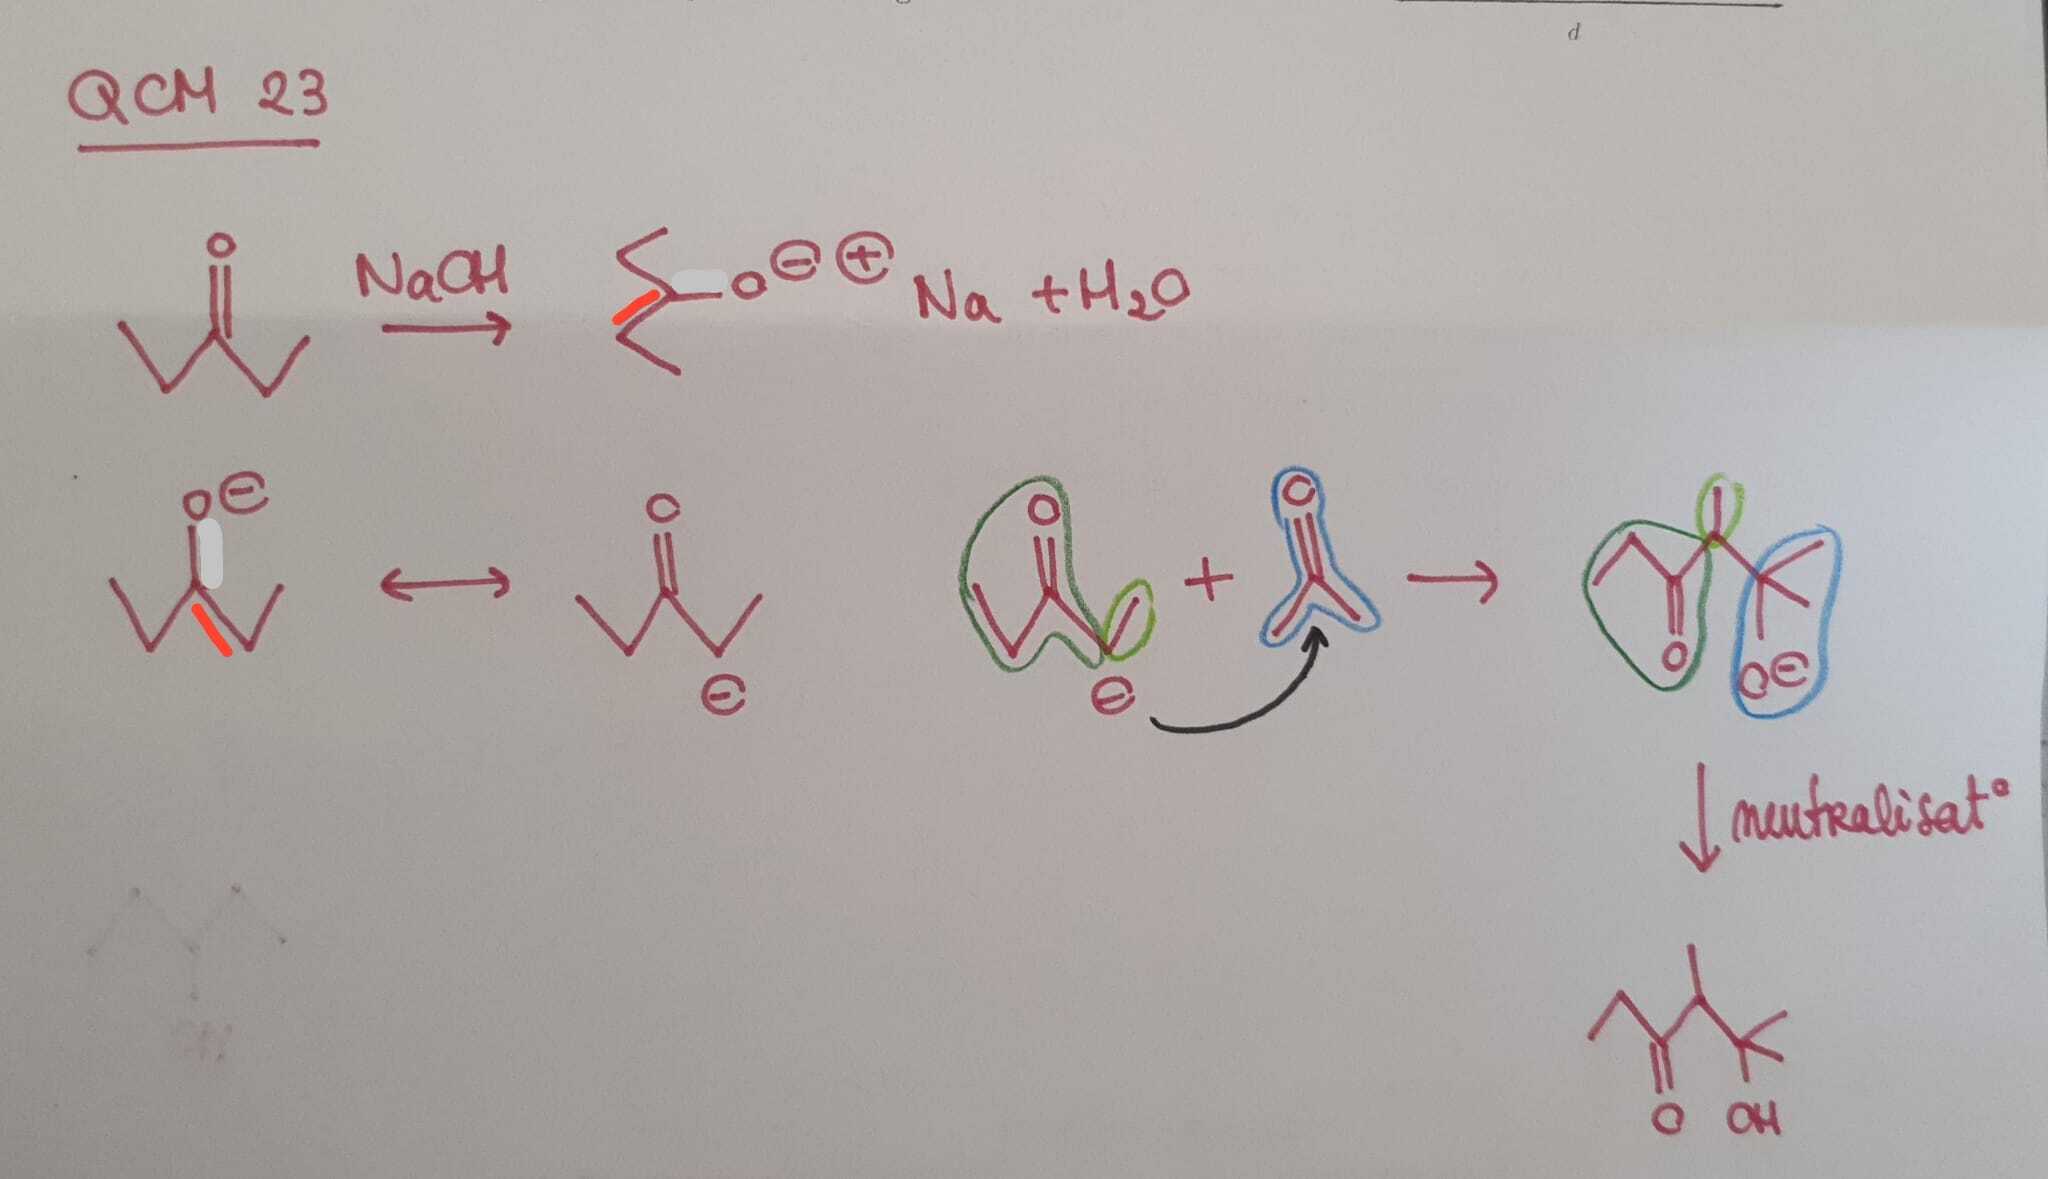 d
QCM 23
O
NaOH
O⊖ ⊕Na + H₂O
O⊖ O O + O
⊖ ⊖ O O⊖
neutralisat°
O OH